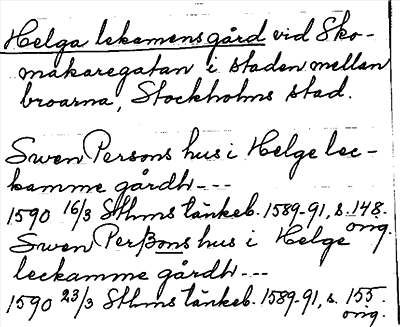 Helga lekamens gård vid Sko-
makaregatan i staden mellan
broarna, Stockholms stad.
Swen Persons hus i Helge lec-
kamme gårdh---
1590 16/3 Sthms tänkeb. 1589-91, s. 148.
orig.
Swen Perßons hus i Helge
leckamme gårdh---
1590 23/3 Sthms tänkeb. 1589-91, s. 155.
orig.